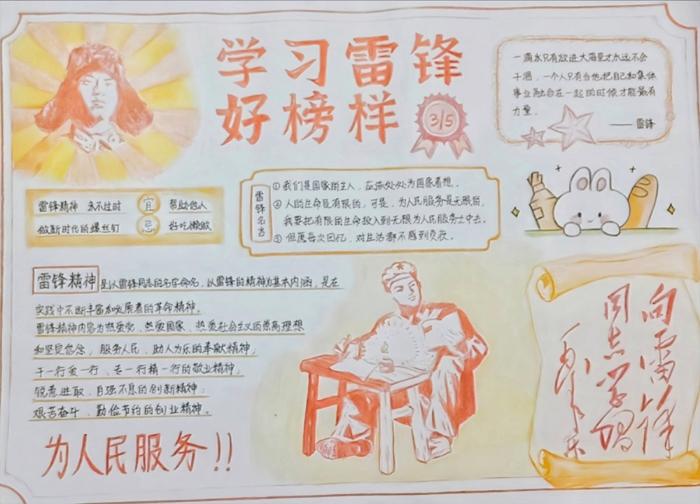 学习雷锋
好榜样
3/5
一滴水只有放进大海里才永远不会
干涸，一个人只有当他把自己和集体
事业融合在一起的时候才能最有
力量。
——雷锋
雷锋精神 永不过时
做新时代的螺丝钉
宜
忌
帮助他人
好吃懒做
雷锋名言
①我们是国家的主人，应该处处为国家着想。
②人的生命是有限的，可是，为人民服务是无限的，
我要把有限的生命投入到无限为人民服务之中去。
③但愿每次回忆，对生活都不感到负疚。
雷锋精神 是以雷锋同志的名字命名，以雷锋的精神为基本内涵，是在
实践中不断丰富和发展着的革命精神。
雷锋精神内容为热爱党，热爱国家，热爱社会主义的崇高理想
和坚定信念，服务人民，助人为乐的奉献精神，
干一行爱一行、专一行精一行的敬业精神，
锐意进取、自强不息的创新精神，
艰苦奋斗、勤俭节约的创业精神。
为人民服务!!
向雷锋
同志学习
毛泽东